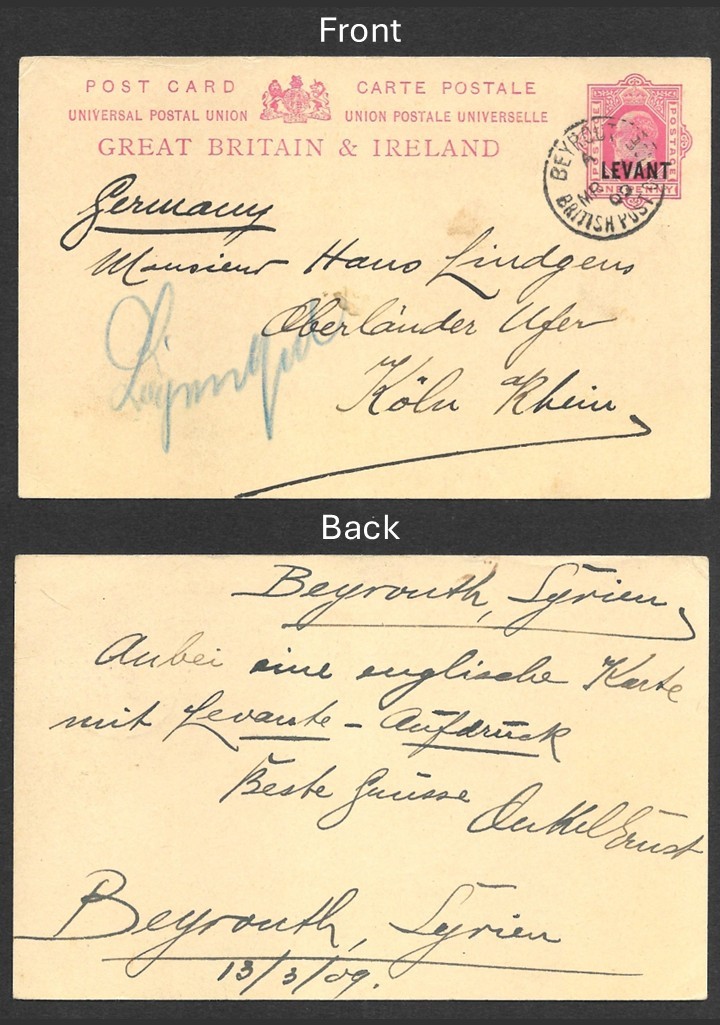 Front
POST CARD
CARTE POSTALE
UNIVERSAL POSTAL UNION
UNION POSTALE UNIVERSELLE
GREAT BRITAIN & IRELAND
POSTAGE
ONE PENNY
LEVANT
BEYROUT
BRITISH POST
Germany
Monsieur Hans Lindgens
Oberländer Ufer
Köln a/Rhein
Back
Beyrouth, Syrien
Anbei eine englische Karte
mit Levante - Aufdruck
Beste Grüsse
Onkel Ernst
Beyrouth, Syrien
13/3/09.